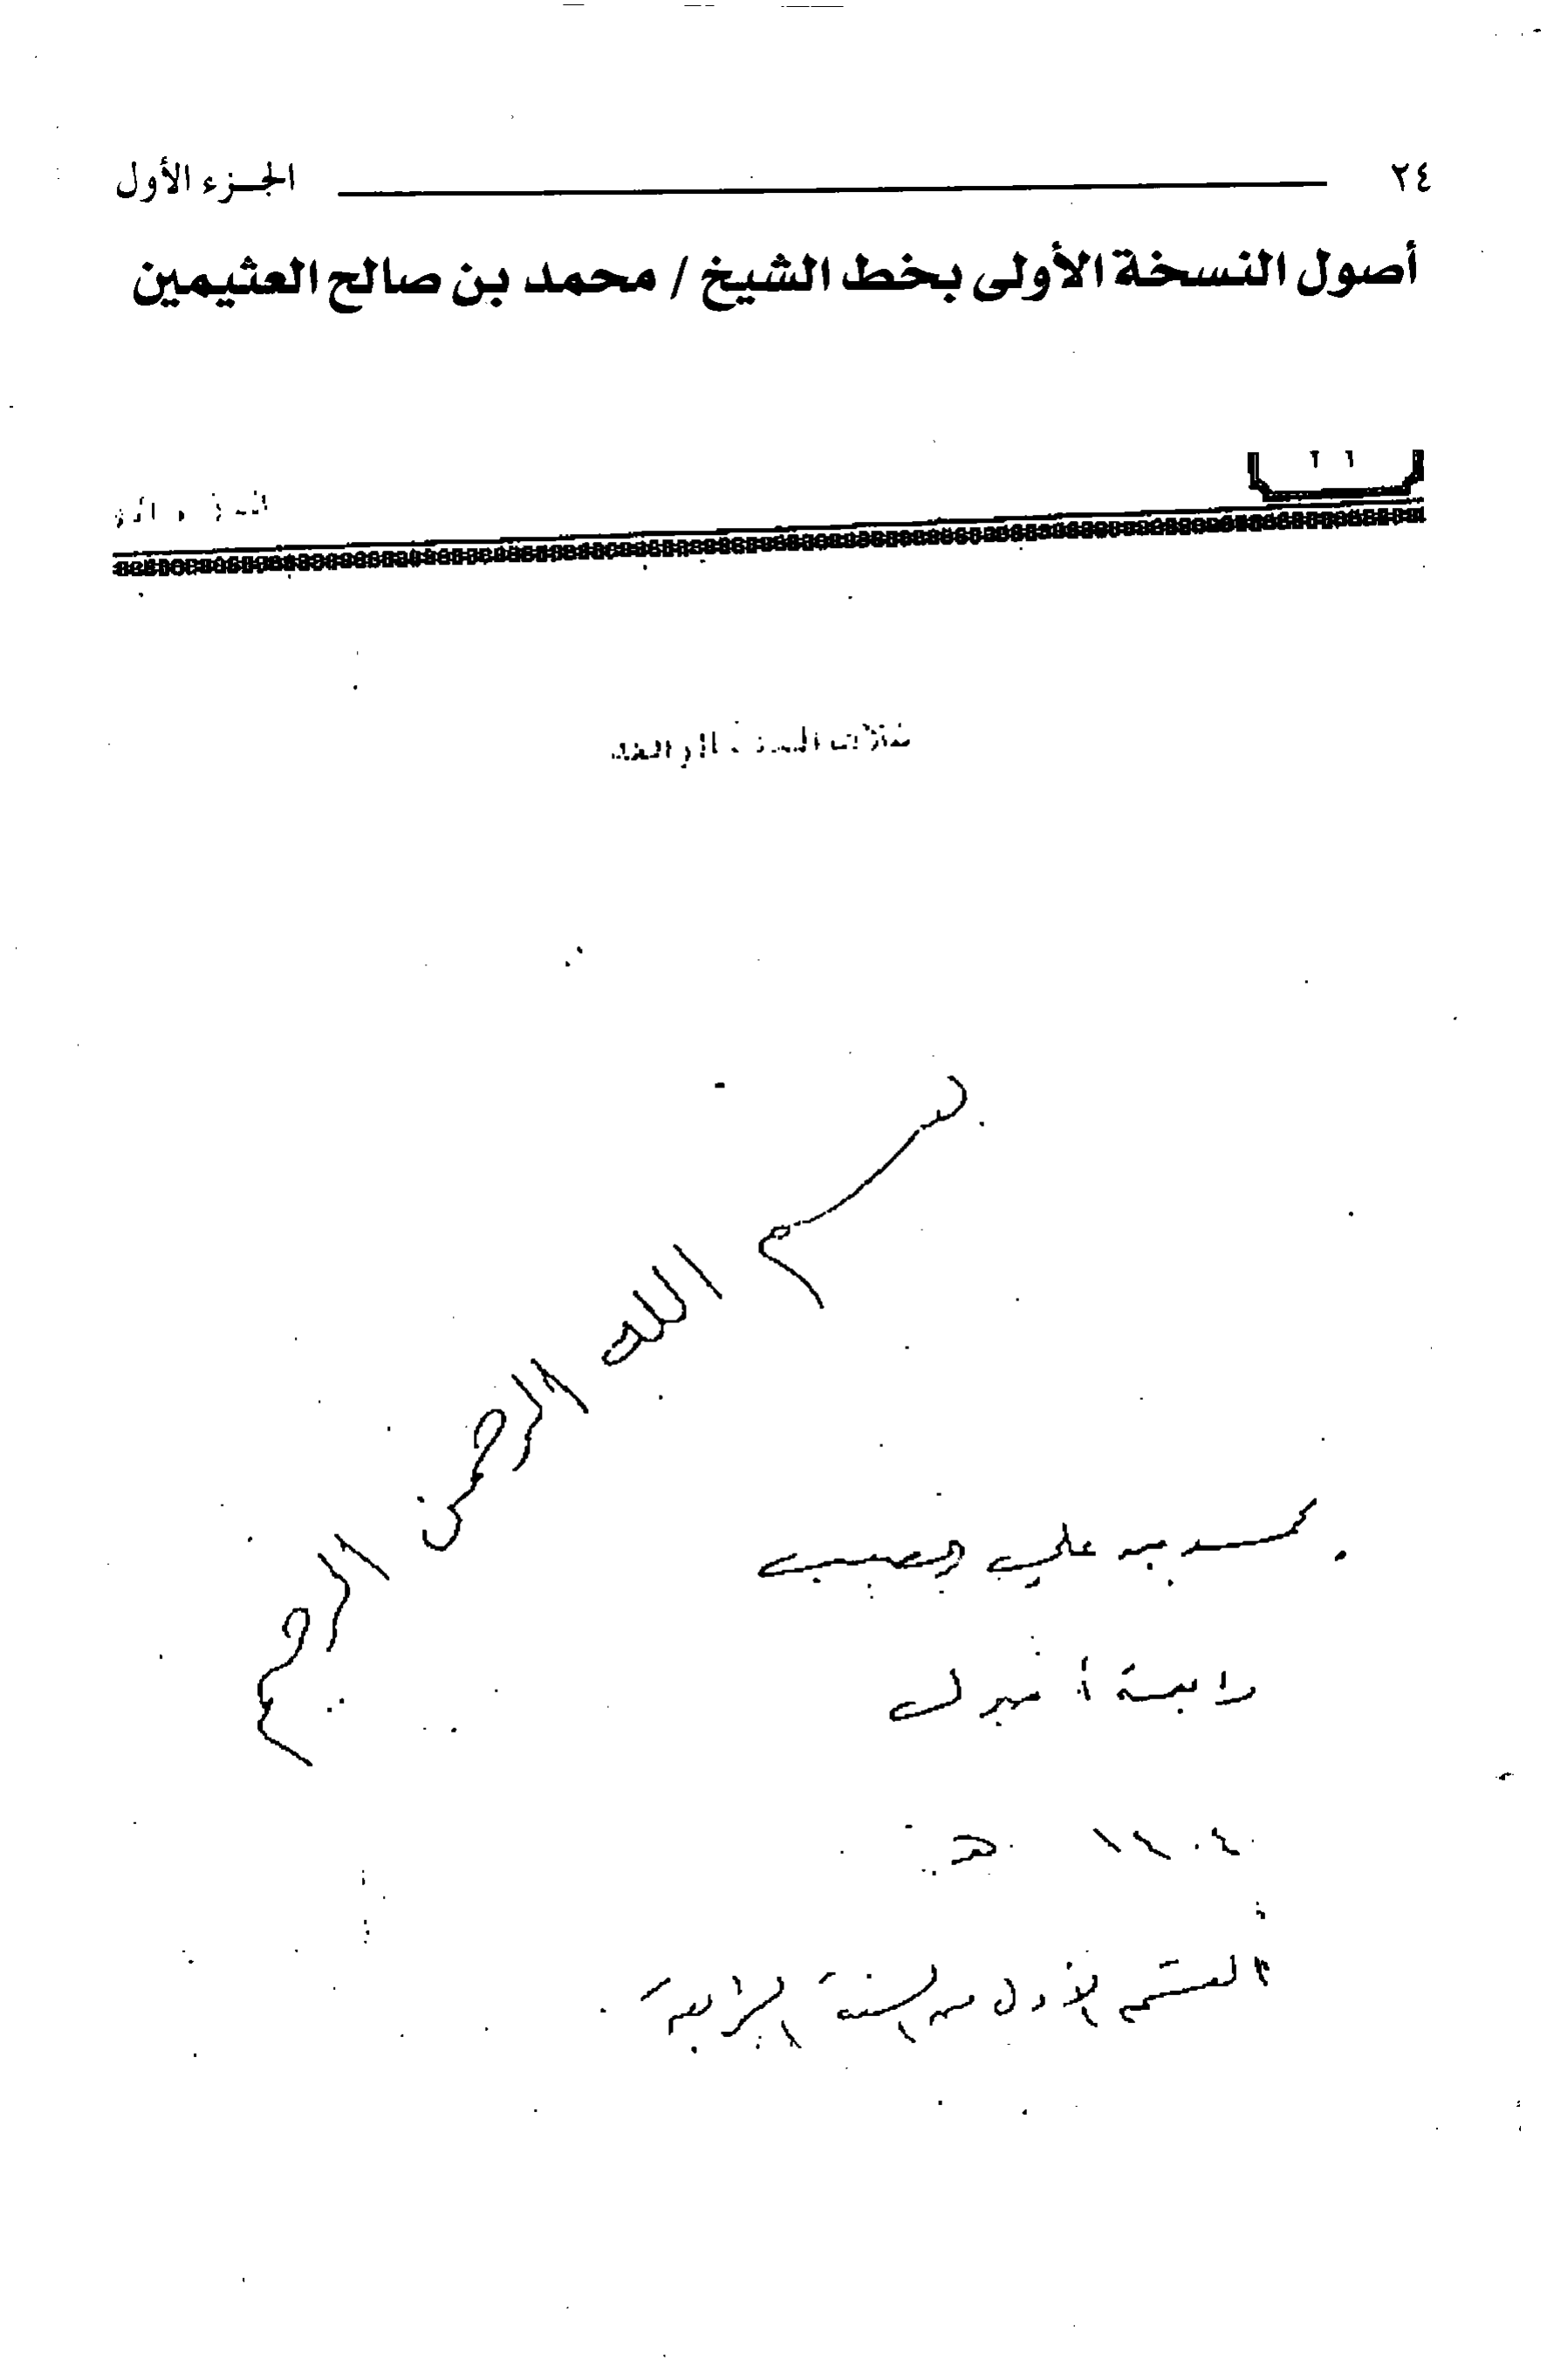 ٢٤ الجـزء الأول
أصول النسخة الأولى بخط الشيخ / محمد بن صالح العثيمين
بسم الله الرحمن الرحيم
محمد بن علي
رابعة أصول
١٤٠٤ هـ
القسم الأول من السنة الرابعة